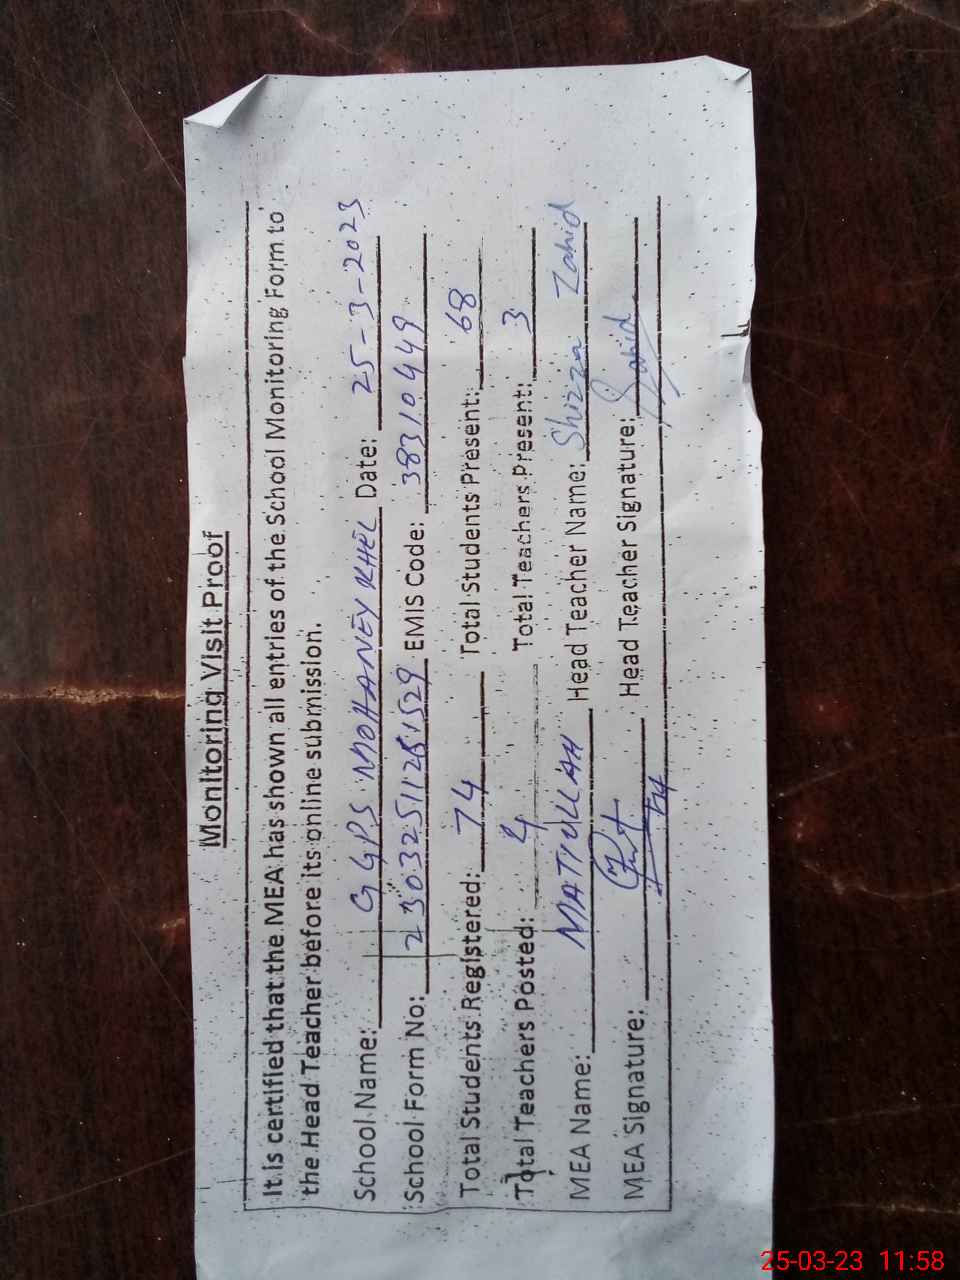 Monitoring Visit Proof
It is certified that the MEA has shown all entries of the School Monitoring Form to
the Head Teacher before its online submission.
School Name: GGPS MOHANEY KHEL Date: 25-3-2023
School Form No: 230325112151529 EMIS Code: 38310449
Total Students Registered: 74 Total Students Present: 68
Total Teachers Posted: 4 Total Teachers Present: 3
MEA Name: MATIULLAH Head Teacher Name: Shizza Zahid
MEA Signature: Head Teacher Signature: Zahid
25-03-23 11:58